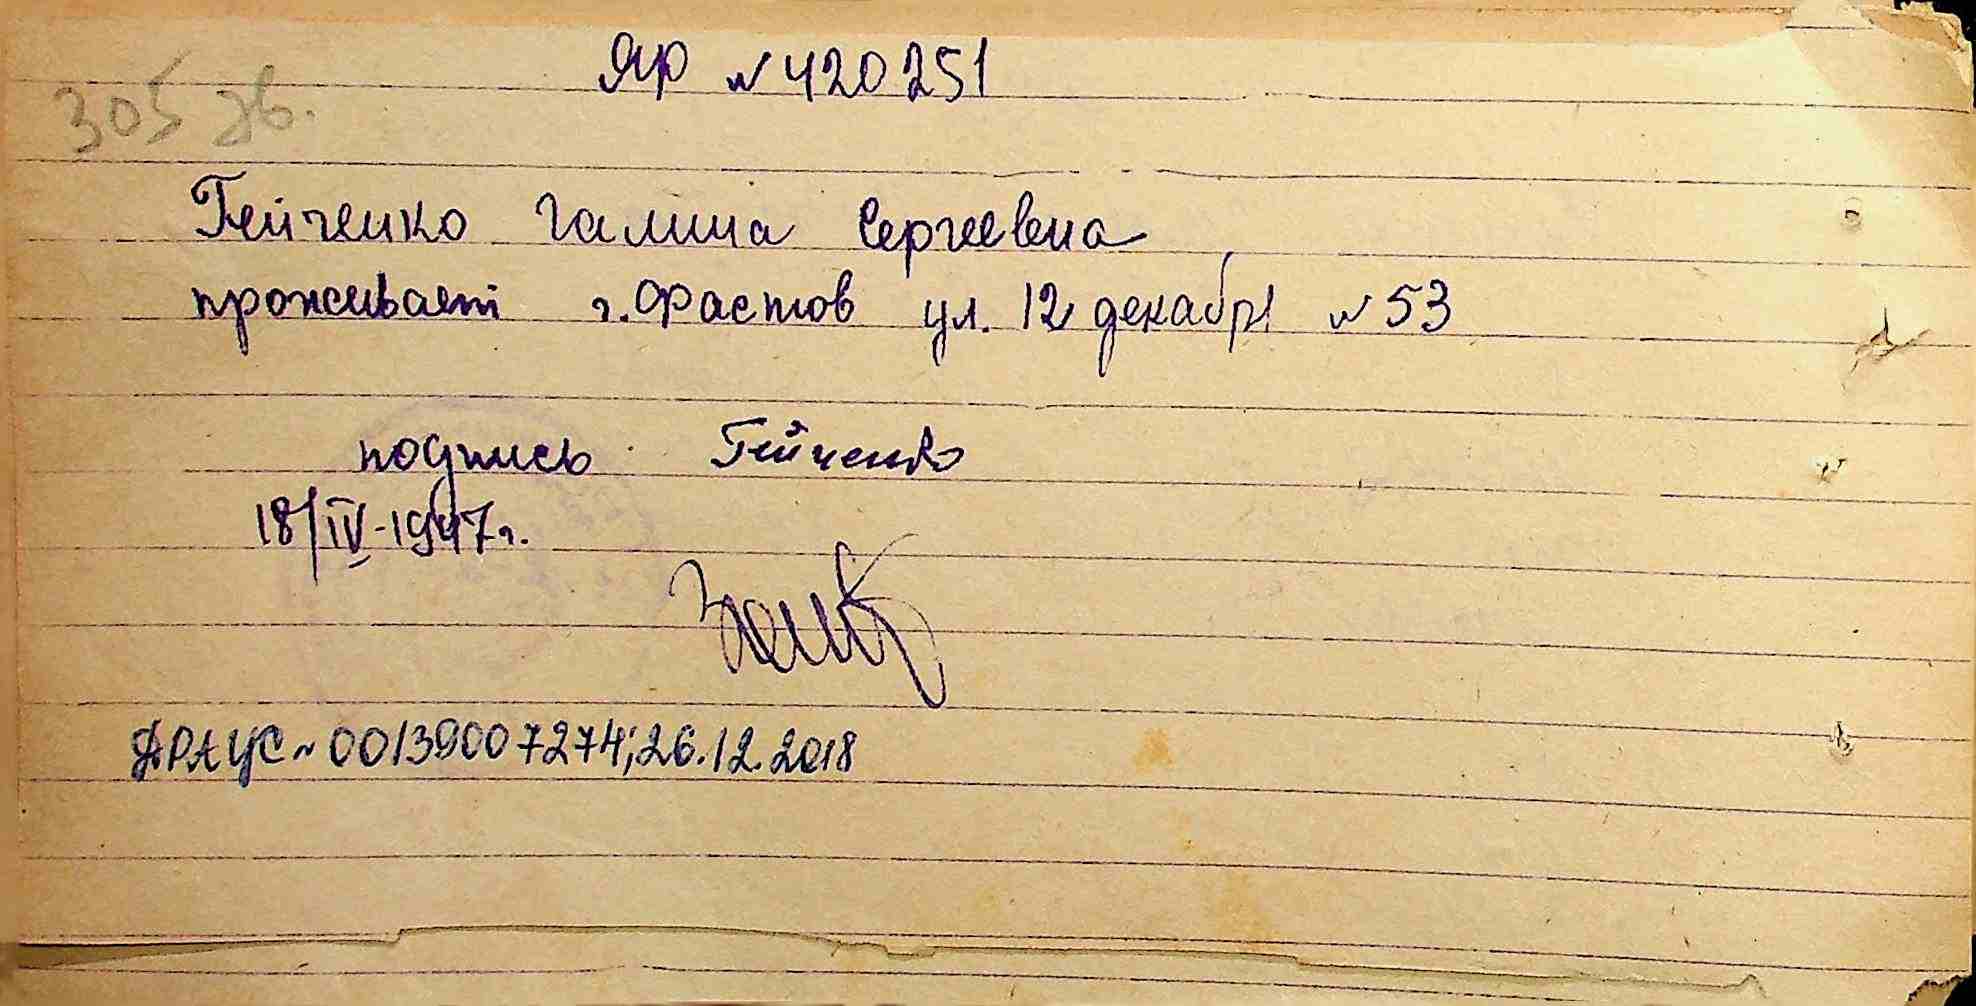 ЯР № 420251
305 зв.
Гейченко Галина Сергеевна
проживает г. Фастов ул. 12 декабря № 53
подпись Гейченко
18/IV-1947 г.
ДРАЦС № 00139007274; 26.12.2018